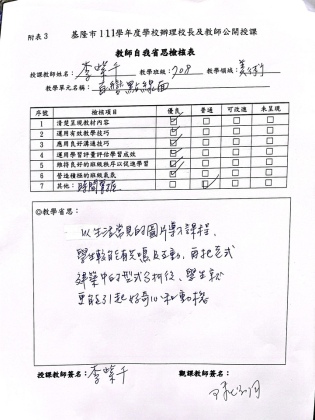 附表 3
基隆市 111 學年度學校辦理校長及教師公開授課
教師自我省思檢核表
授課教師姓名：李榮千 教學班級：708 教學領域：美術
教學單元名稱：點線面
序號 檢核項目 優良 普通 可改進 未呈現
1 清楚呈現教材內容 ☑ □ □ □
2 運用有效教學技巧 ☑ □ □ □
3 應用良好溝通技巧 ☑ □ □ □
4 運用學習評量評估學習成效 ☑ □ □ □
5 維持良好的班級秩序以促進學習 ☑ □ □ □
6 營造積極的班級氣氛 ☑ □ □ □
7 其他：時間掌控 □ ☑ □ □
◎教學省思：
以生活常見的圖片導入課程，
學生較能有共鳴及互動，再把
建築中的型式，學生就
更能引起好奇心和動機
授課教師簽名：李榮千 觀課教師簽名：